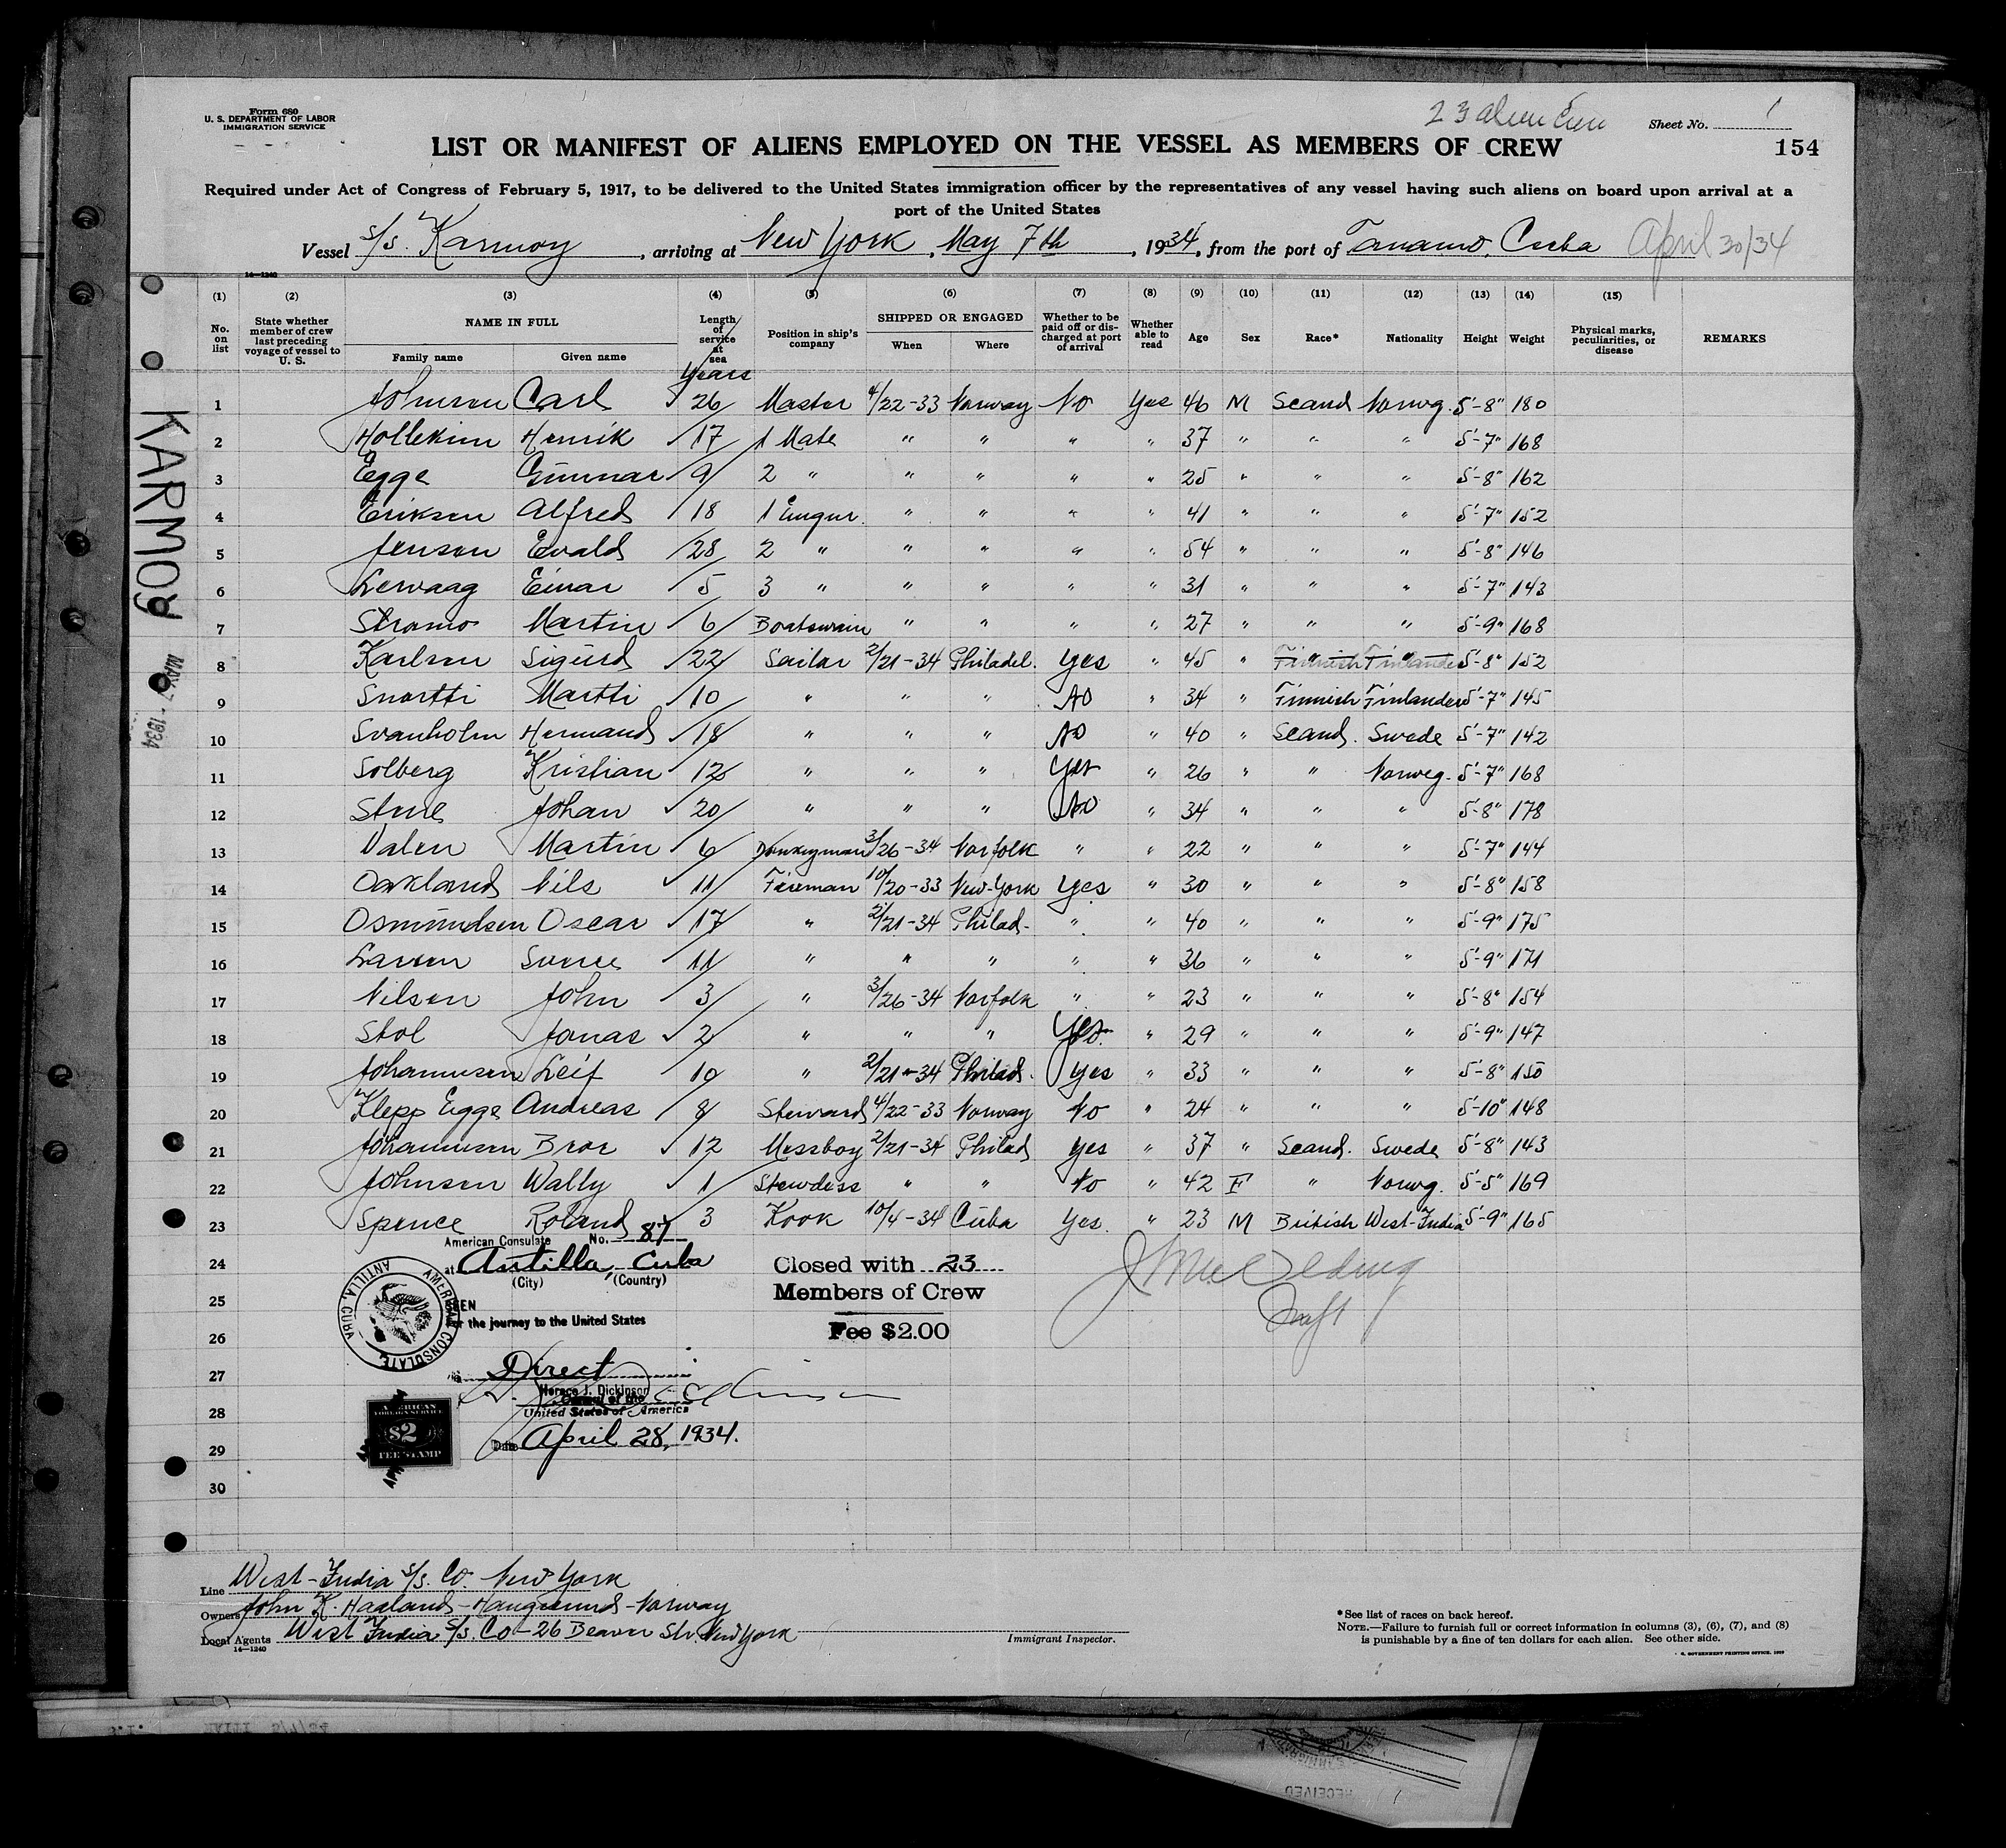 Form 680
U. S. DEPARTMENT OF LABOR
IMMIGRATION SERVICE
23 alien Crew
Sheet No. 1
LIST OR MANIFEST OF ALIENS EMPLOYED ON THE VESSEL AS MEMBERS OF CREW
154
Required under Act of Congress of February 5, 1917, to be delivered to the United States immigration officer by the representatives of any vessel having such aliens on board upon arrival at a
port of the United States
Vessel S/s. Karmoy, arriving at New York, May 7th, 1934, from the port of Tanamo, Cuba April 30/34
14-1240
(1) (2) (3) (4) (5) (6) (7) (8) (9) (10) (11) (12) (13) (14) (15)
No. on list State whether member of crew last preceding voyage of vessel to U. S. NAME IN FULL Family name Given name Length of service at sea Years Position in ship's company SHIPPED OR ENGAGED When Where Whether to be paid off or discharged at port of arrival Whether able to read Age Sex Race* Nationality Height Weight Physical marks, peculiarities, or disease REMARKS
1 Johnson Carl 26 Master 4/22-33 Norway No Yes 46 M Scand Norwg. 5'-8" 180
2 Hollekim Henrik 17 1 Mate " " " " 37 " " " 5'-7" 168
3 Egge Gunnar 9 2 " " " " " 25 " " " 5'-8" 162
4 Eriksen Alfred 18 1 Engnr. " " " " 41 " " " 5'-7" 152
5 Jensen Evald 28 2 " " " " " 54 " " " 5'-8" 146
6 Lervaag Einar 5 3 " " " " " 31 " " " 5'-7" 143
7 Stramo Martin 6 Boatswain " " " " 27 " " " 5'-9" 168
8 Karlson Sigurd 22 Sailor 2/21-34 Philadel. Yes " 45 " Finnish Finlander 5'-8" 152
9 Snortti Martti 10 " " " No " 34 " Finnish Finlander 5'-7" 145
10 Svanholm Hermand 18 " " " No " 40 " Scand. Swede 5'-7" 142
11 Solberg Kristian 12 " " " Yes " 26 " " Norweg. 5'-7" 168
12 Johan 20 " " " No " 34 " " " 5'-8" 178
13 Valen Martin 6 Donkeyman 3/26-34 Norfolk " " 22 " " " 5'-7" 144
14 Oakland Nils 11 Fireman 10/20-33 New-York Yes " 30 " " " 5'-8" 158
15 Osmundsen Oscar 17 " 2/21-34 Philad- " " 40 " " " 5'-9" 175
16 Larsen Sverre 11 " " " " " 36 " " " 5'-9" 171
17 Nilsen John 3 " 3/26-34 Norfolk " " 23 " " " 5'-8" 154
18 Stol Jonas 2 " " " Yes. " 29 " " " 5'-9" 147
19 Johannesen Leif 10 " 2/21-34 Philad. Yes " 33 " " " 5'-8" 150
20 Klepp Egge Andreas 8 Steward 4/22-33 Norway No " 24 " " " 5'-10" 148
21 Johannesen Bror 12 Messboy 2/21-34 Philad Yes " 37 " Scand. Swede 5'-8" 143
22 Johnsen Wally 1 Stewdess " " No " 42 F " Norwg. 5'-5" 169
23 Spence Roland 3 Kook 10/4-34 Cuba Yes. " 23 M British West-India 5'-9" 165
24
25
26
27
28
29
30
American Consulate No. 87
at Antilla, Cuba
(City) (Country)
SEEN
For the journey to the United States
Direct
Horace J. Dickinson
Consul of the
United States of America
Date April 28, 1934.
AMERICAN CONSULATE ANTILLA, CUBA
AMERICAN
FOREIGN SERVICE
$2
FEE STAMP
Closed with 23
Members of Crew
Fee $2.00
KARMOY
MAY 7 - 1934
Line West-India S/s. Co. New York
Owners John K. Haaland - Haugesund - Norway
Local Agents West India S/s. Co - 26 Beaver Str. New York
14-1240
Immigrant Inspector.
*See list of races on back hereof.
NOTE.—Failure to furnish full or correct information in columns (3), (6), (7), and (8)
is punishable by a fine of ten dollars for each alien. See other side.
RECEIVED